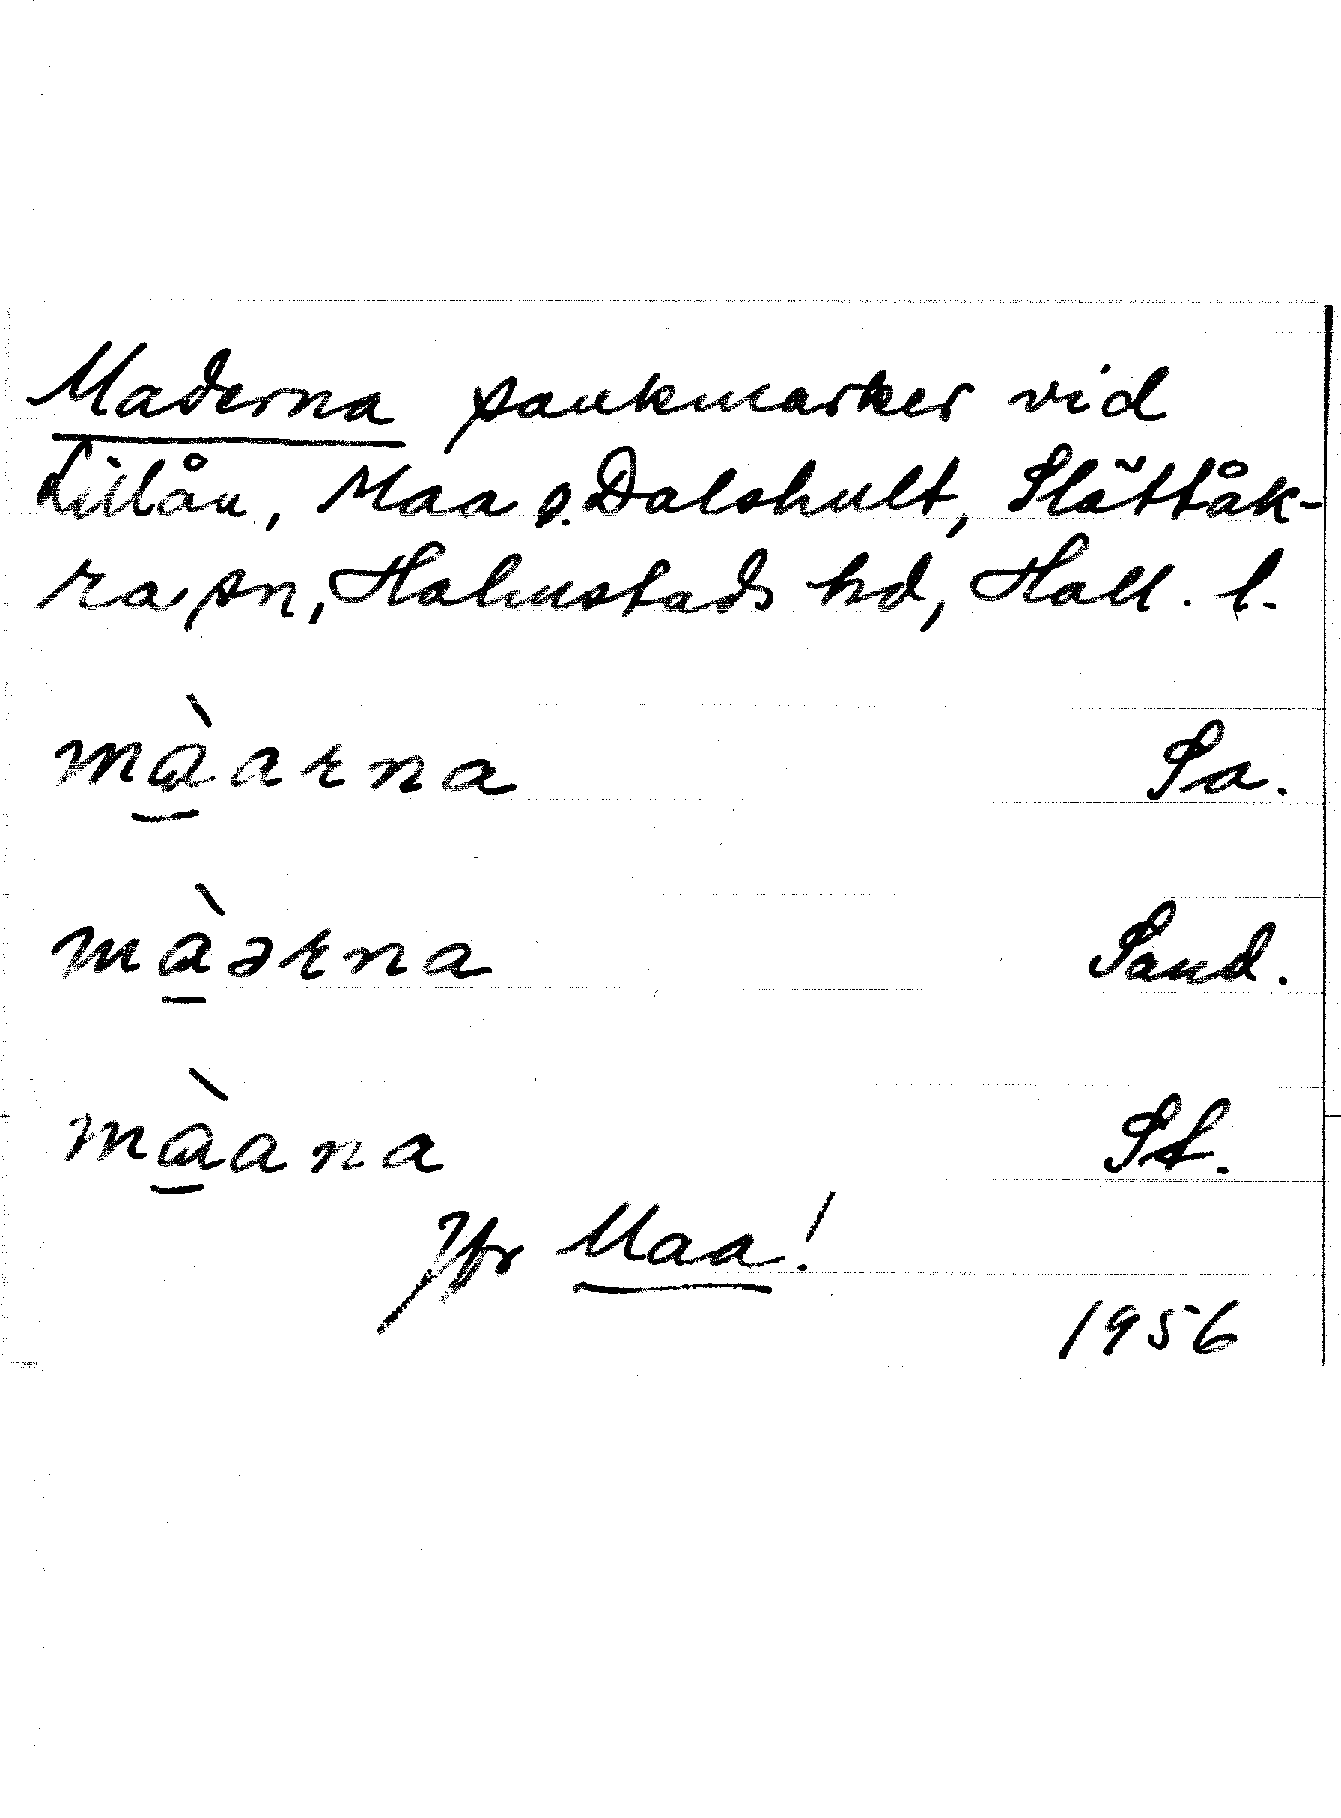 Maderna sankmarker vid
Lillån, Maa o. Dalshult, Slättåk-
ra sn, Halmstads hd, Hall. l.
màarna Sa.
màərna Sand.
màana St.
Jfr Maa!
1956